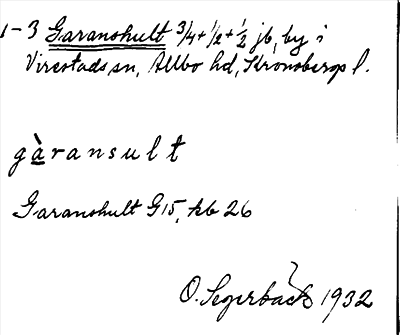 1-3 Garanshult 3/4+1/2+1/2 jb, by i
Virestads sn, Allbo hd, Kronobergs l.
gàransult
Garanshult G15, kb 26
O. Segerbäck 1932